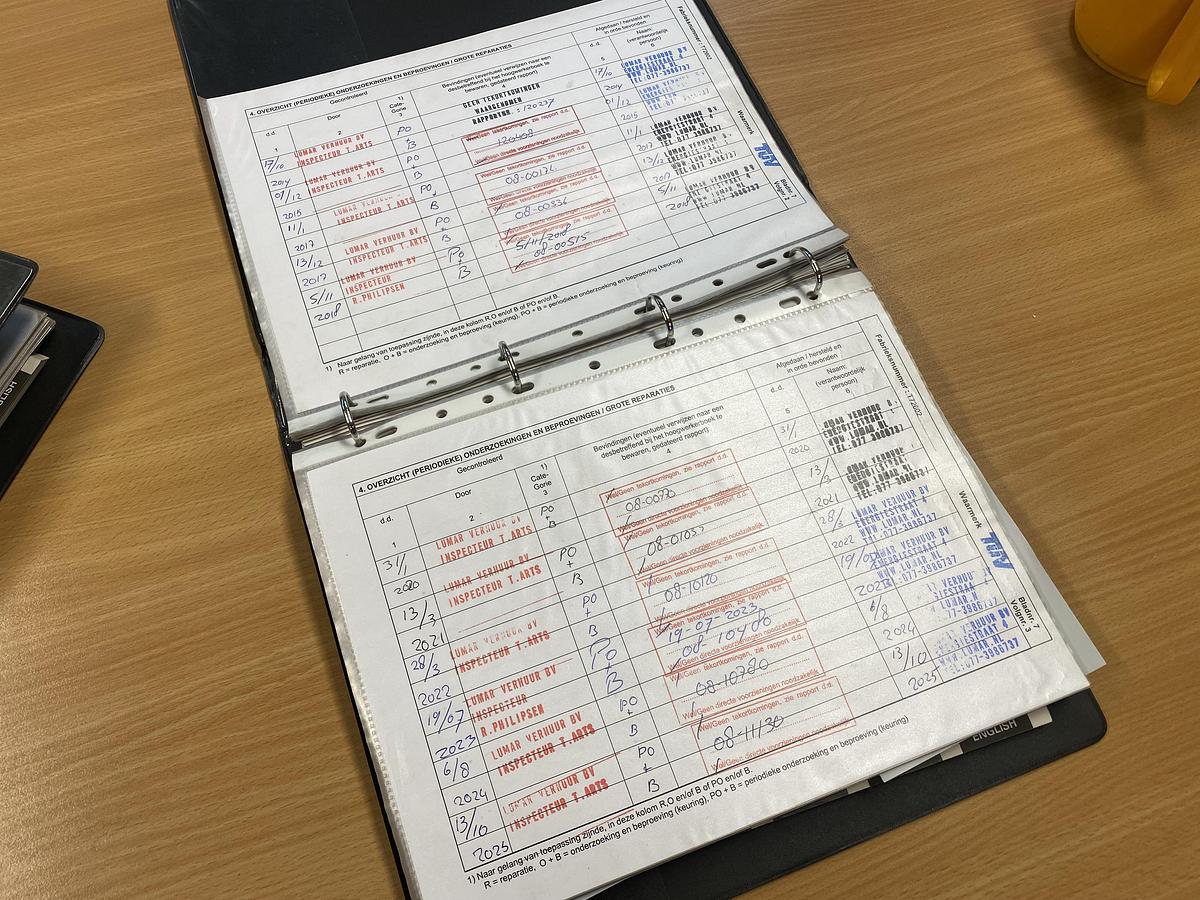 4. OVERZICHT (PERIODIEKE) ONDERZOEKINGEN EN BEPROEVINGEN / GROTE REPARATIES
Gecontroleerd
Afgedaan / hersteld en
in orde bevonden
d.d.
Door
1)
Cate-
Gorie
Bevindingen (eventueel verwijzen naar een
desbetreffend bij het hoogwerkerboek te
bewaren, gedateerd rapport)
d.d.
Naam:
(verantwoordelijk
persoon)
1
2
3
4
5
6
Fabrieksnummer : T72602
Waarmerk
TÜV
Bladnr. 7
17/10
2014
LUMAR VERHUUR BV
INSPECTEUR T.ARTS
PO
+
B
GEEN TEKORTKOMINGEN
WAARGENOMEN
RAPPORTNR. : 120237
17/10
2014
LUMAR VERHUUR BV
ENERGIESTRAAT 4
WWW.LUMAR.NL
TEL:077-3986737
01/12
2015
LUMAR VERHUUR BV
INSPECTEUR T.ARTS
PO
+
B
120408
Wel/Geen directe voorzieningen noodzakelijk
01/12
2015
11/1
2017
LUMAR VERHUUR BV
INSPECTEUR T.ARTS
PO
+
B
Wel/Geen tekortkomingen, zie rapport d.d.
08-00172
Wel/Geen directe voorzieningen noodzakelijk
11/1
2017
13/12
2017
LUMAR VERHUUR BV
INSPECTEUR T.ARTS
PO
+
B
Wel/Geen tekortkomingen, zie rapport d.d.
08-00336
Wel/Geen directe voorzieningen noodzakelijk
13/12
2017
5/11
2018
LUMAR VERHUUR BV
INSPECTEUR
R.PHILIPSEN
PO
+
B
5/11/2018
08-00515
Wel/Geen directe voorzieningen noodzakelijk
5/11
2018
1) Naar gelang van toepassing zijnde, in deze kolom R,O en/of B of PO en/of B.
R = reparatie, O + B = onderzoeking en beproeving (keuring), PO + B = periodieke onderzoeking en beproeving (keuring)
4. OVERZICHT (PERIODIEKE) ONDERZOEKINGEN EN BEPROEVINGEN / GROTE REPARATIES
Gecontroleerd
Afgedaan / hersteld en
in orde bevonden
d.d.
Door
1)
Cate-
Gorie
Bevindingen (eventueel verwijzen naar een
desbetreffend bij het hoogwerkerboek te
bewaren, gedateerd rapport)
d.d.
Naam:
(verantwoordelijk
persoon)
1
2
3
4
5
6
Fabrieksnummer : T72602
Waarmerk
TÜV
Bladnr. 7
Volgnr. 3
31/1
2020
LUMAR VERHUUR BV
INSPECTEUR T.ARTS
PO
+
B
Wel/Geen tekortkomingen, zie rapport d.d.
08-00770
Wel/Geen directe voorzieningen noodzakelijk
31/1
2020
13/3
2021
LUMAR VERHUUR BV
INSPECTEUR T.ARTS
PO
+
B
Wel/Geen tekortkomingen, zie rapport d.d.
Wel/Geen directe voorzieningen noodzakelijk
13/3
2021
28/3
2022
LUMAR VERHUUR BV
INSPECTEUR T.ARTS
PO
+
B
Wel/Geen tekortkomingen, zie rapport d.d.
08-10120
Wel/Geen directe voorzieningen noodzakelijk
28/3
2022
LUMAR VERHUUR BV
ENERGIESTRAAT 4
WWW.LUMAR.NL
TEL:077-3986737
19/07
2023
LUMAR VERHUUR BV
INSPECTEUR
R.PHILIPSEN
PO
+
B
19-07-2023
08-10480
Wel/Geen directe voorzieningen noodzakelijk
2023
ENERGIESTRAAT 4
WWW.LUMAR.NL
TEL:077-3986737
6/8
2024
LUMAR VERHUUR BV
INSPECTEUR T.ARTS
PO
+
B
Wel/Geen tekortkomingen, zie rapport d.d.
08-10780
Wel/Geen directe voorzieningen noodzakelijk
6/8
2024
13/10
2025
LUMAR VERHUUR BV
INSPECTEUR T.ARTS
PO
+
B
Wel/Geen tekortkomingen, zie rapport d.d.
08-11130
Wel/Geen directe voorzieningen noodzakelijk
13/10
2025
LUMAR VERHUUR BV
ENERGIESTRAAT 4
WWW.LUMAR.NL
TEL:077-3986737
1) Naar gelang van toepassing zijnde, in deze kolom R,O en/of B of PO en/of B.
R = reparatie, O + B = onderzoeking en beproeving (keuring), PO + B = periodieke onderzoeking en beproeving (keuring)
ENGLISH